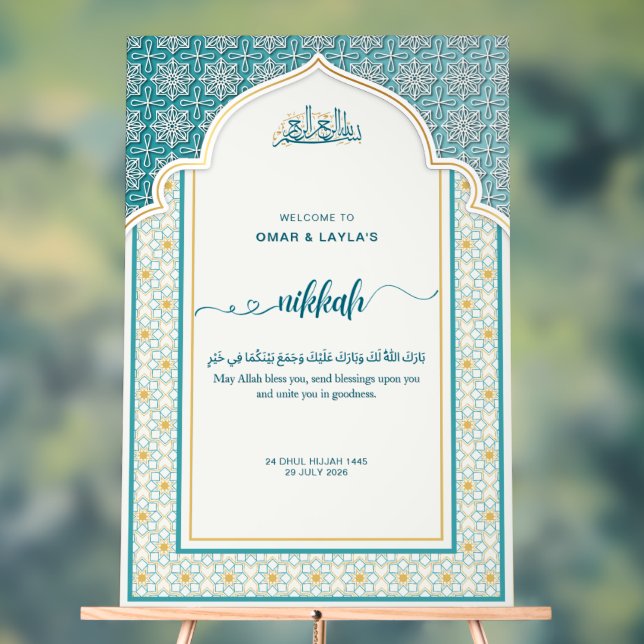 بسم الله الرحمن الرحيم
WELCOME TO
OMAR & LAYLA'S
nikkah
بَارَكَ اللهُ لَكَ وَبَارَكَ عَلَيْكَ وَجَمَعَ بَيْنَكُمَا فِي خَيْرٍ
May Allah bless you, send blessings upon you
and unite you in goodness.
24 DHUL HIJJAH 1445
29 JULY 2026